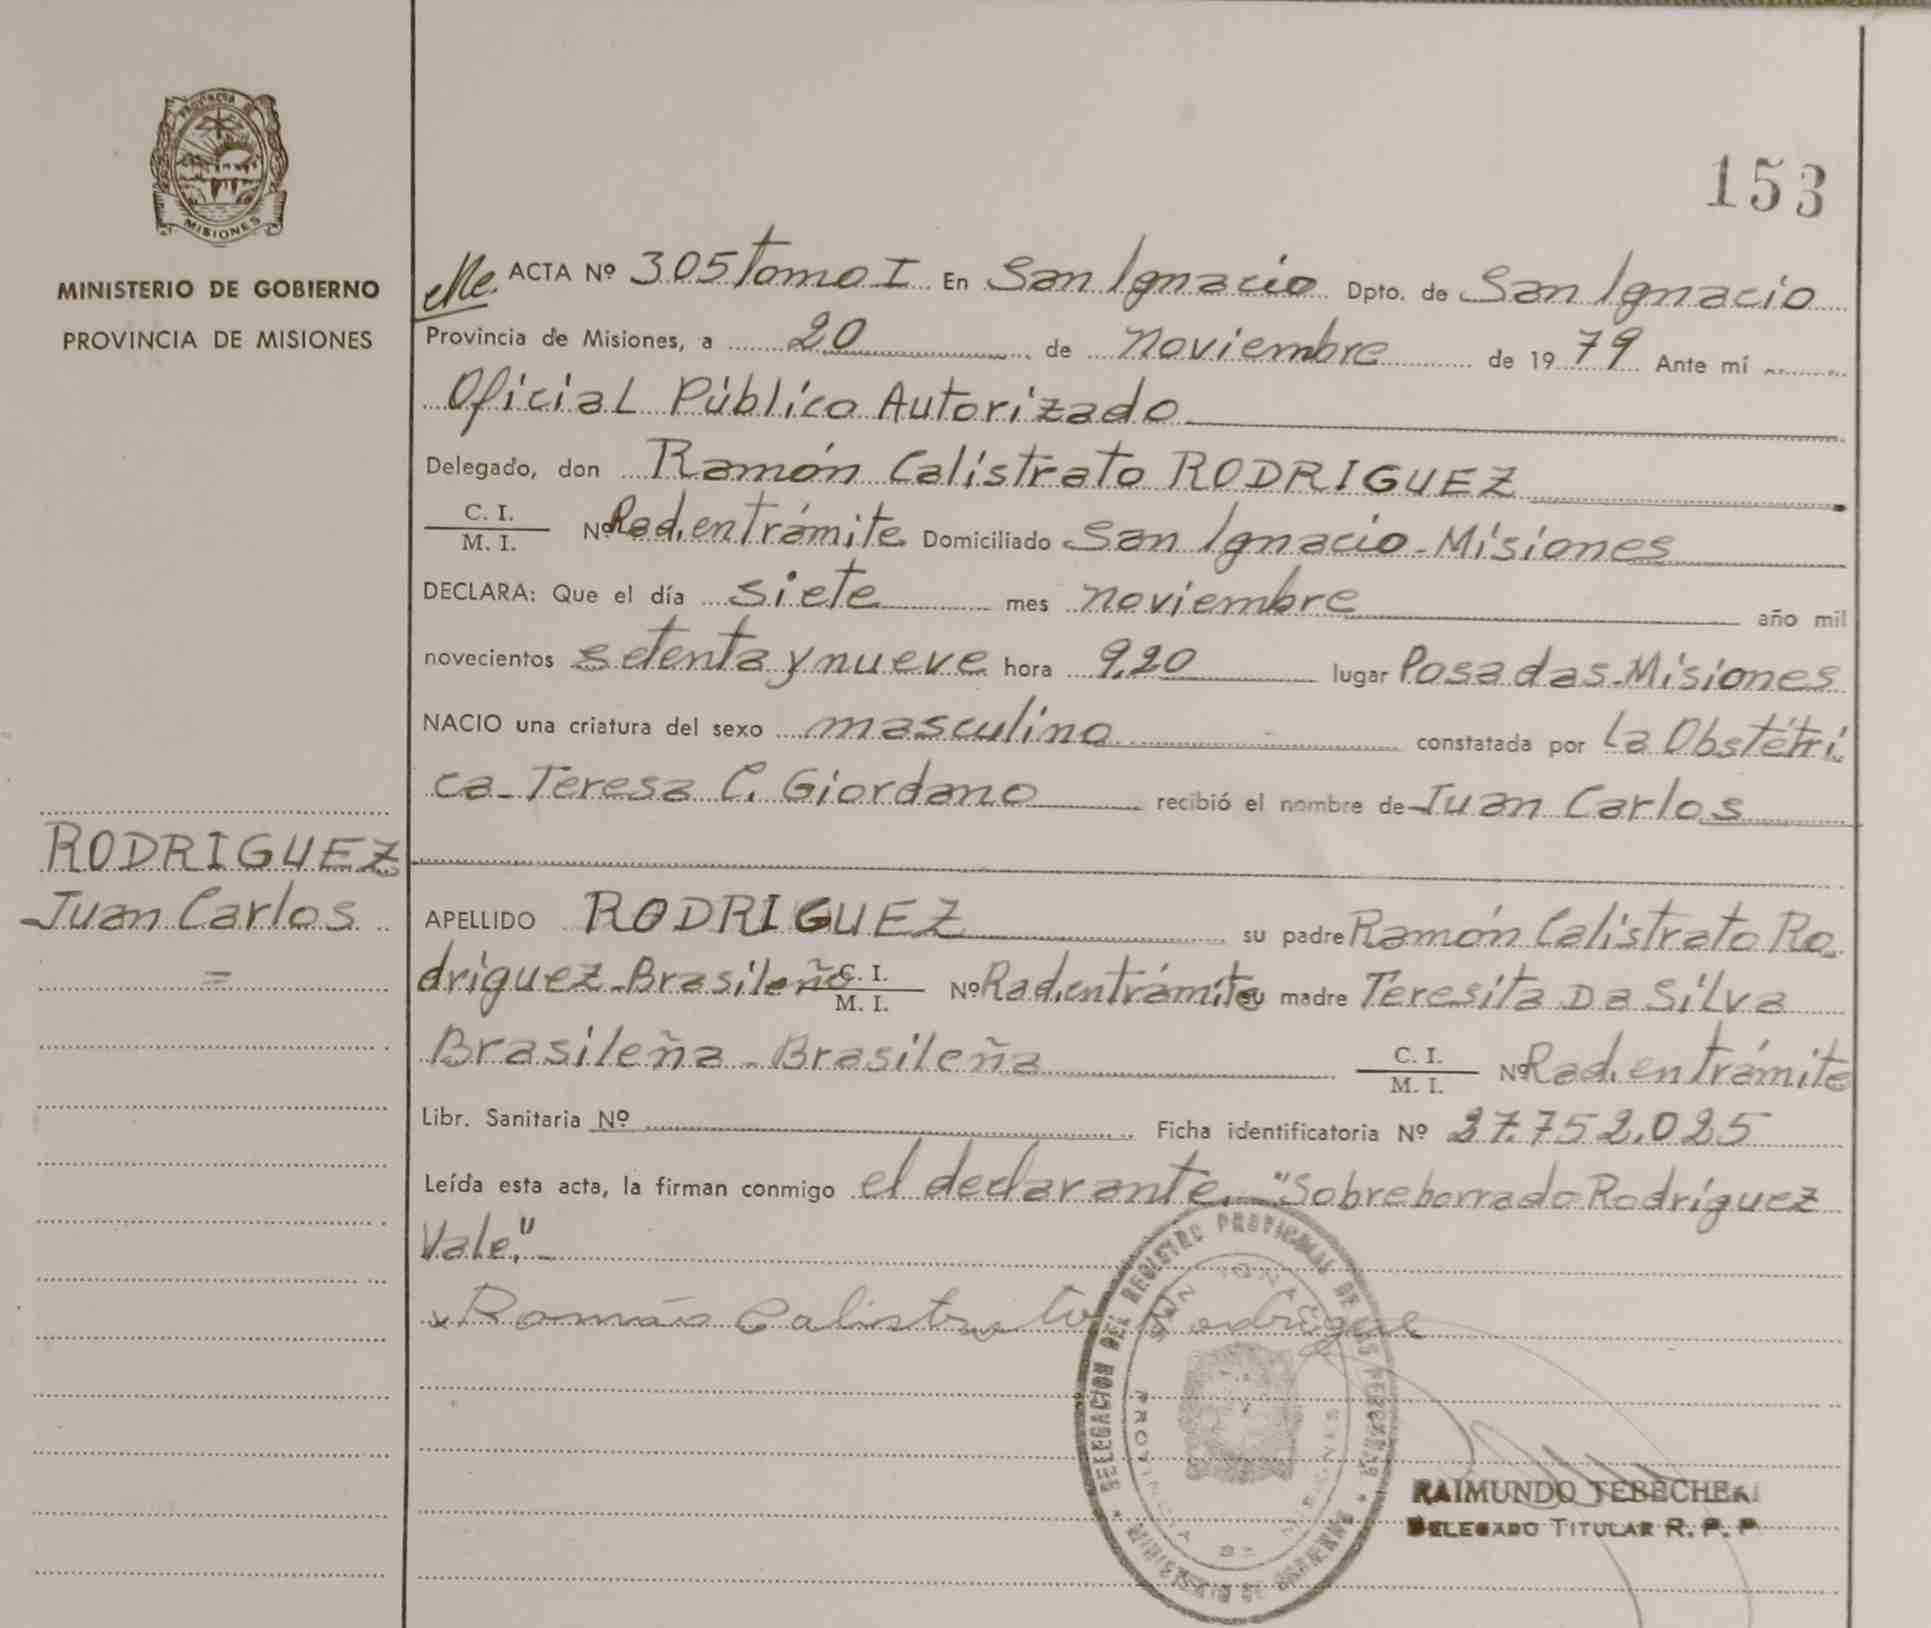 PROVINCIA DE
MISIONES
MINISTERIO DE GOBIERNO
PROVINCIA DE MISIONES
RODRIGUEZ
Juan Carlos
=
153
ACTA Nº 305 Tomo I En San Ignacio Dpto. de San Ignacio
Provincia de Misiones, a 20 de noviembre de 1979 Ante mí
Oficial Público Autorizado
Delegado, don Ramón Calistrato RODRIGUEZ
C. I.
M. I. Nº Rad. en trámite Domiciliado San Ignacio - Misiones
DECLARA: Que el día siete mes noviembre año mil
novecientos setenta y nueve hora 9,20 lugar Posadas - Misiones
NACIO una criatura del sexo masculino constatada por la Obstétri
ca - Teresa C. Giordano recibió el nombre de Juan Carlos
APELLIDO RODRIGUEZ su padre Ramón Calistrato Ro
driguez - Brasileño C. I. M. I. Nº Rad. en trámite su madre Teresita Da Silva
Brasileña - Brasileña C. I. M. I. Nº Rad. en trámite
Libr. Sanitaria Nº Ficha identificatoria Nº 27.752.025
Leída esta acta, la firman conmigo el declarante. - "Sobreborrado Rodríguez
Vale." -
x Calistrato
DELEGACION DEL REGISTRO PROVINCIAL DE LAS PERSONAS
SAN IGNACIO
PROVINCIA DE MISIONES
MINISTERIO DE GOBIERNO
RAIMUNDO
DELEGADO TITULAR R. P. P.